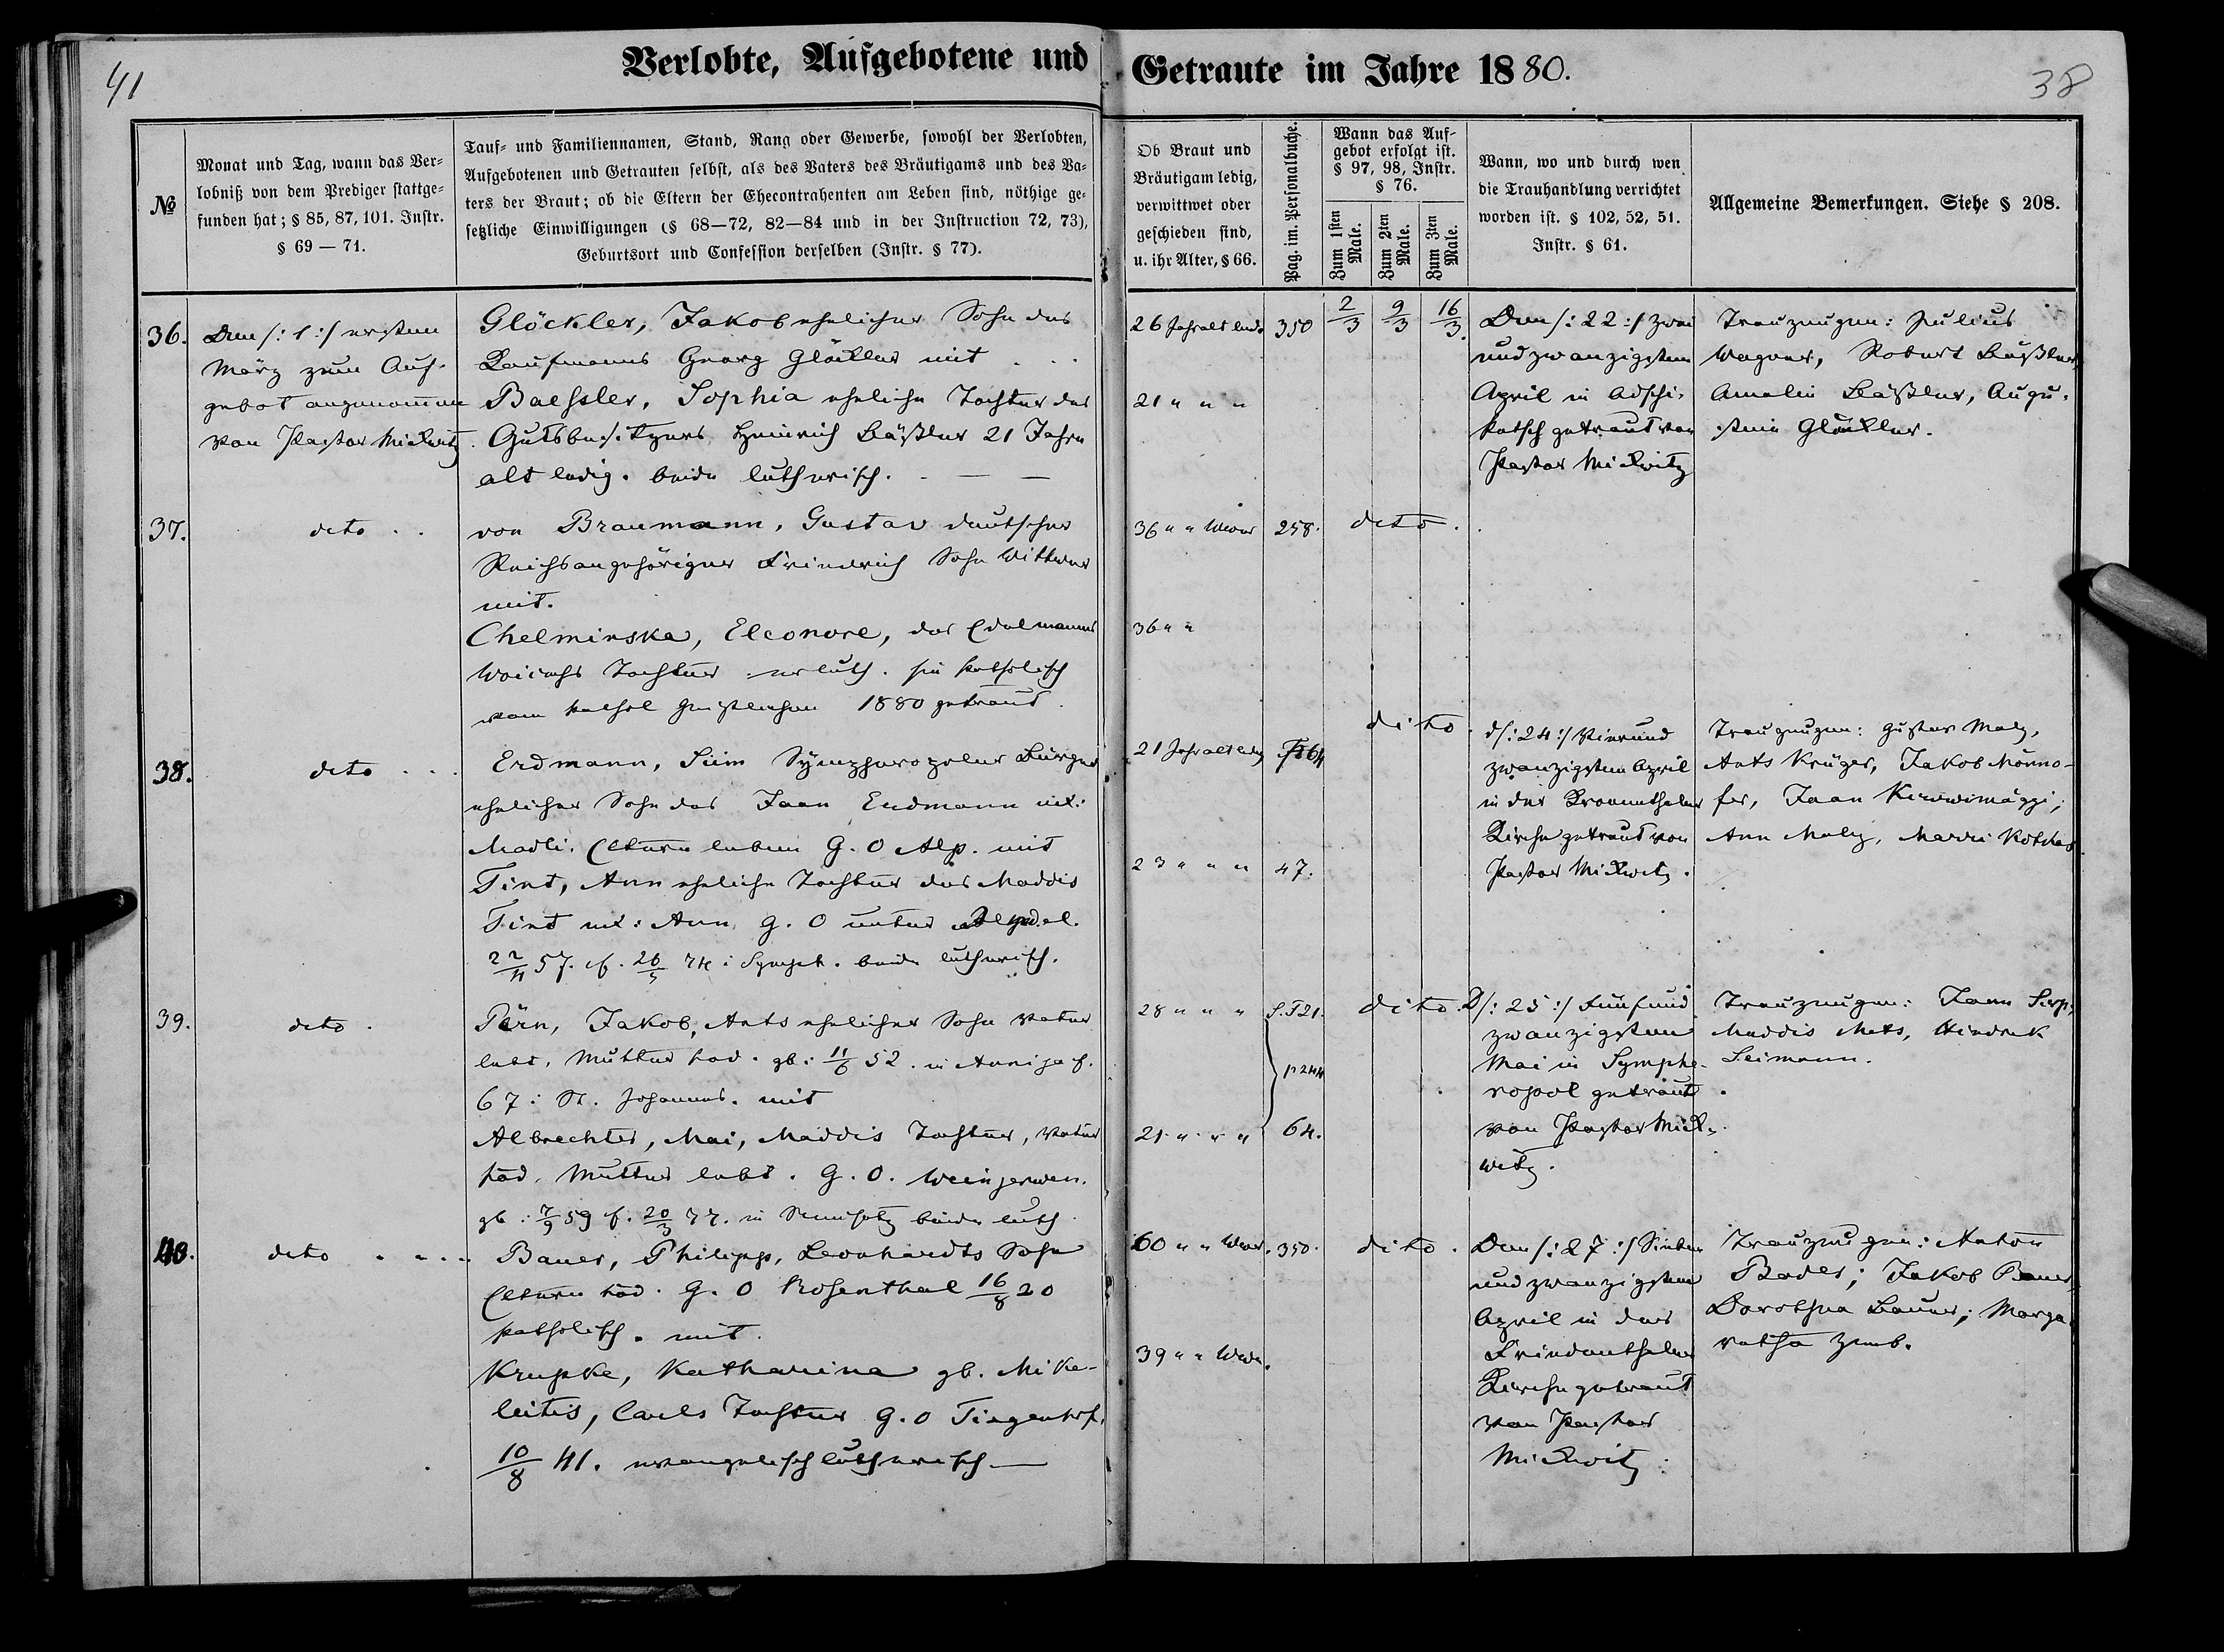 41
Verlobte, Aufgebotene und
Getraute im Jahre 1880.
38
№
Monat und Tag, wann das Ver-
lobniß von dem Prediger stattge-
funden hat; § 85, 87, 101. Instr.
§ 69 — 71.
Tauf- und Familiennamen, Stand, Rang oder Gewerbe, sowohl der Verlobten,
Aufgebotenen und Getrauten selbst, als des Vaters des Bräutigams und des Va-
ters der Braut; ob die Eltern der Ehecontrahenten am Leben sind, nöthige ge-
setzliche Einwilligungen (§ 68—72, 82—84 und in der Instruction 72, 73),
Geburtsort und Confession derselben (Instr. § 77).
Ob Braut und
Bräutigam ledig,
verwittwet oder
geschieden sind,
u. ihr Alter, § 66.
Pag. im. Personalbuche.
Wann das Auf-
gebot erfolgt ist.
§ 97, 98, Instr.
§ 76.
Zum 1sten
Male.
Zum 2ten
Male.
Zum 3ten
Male.
Wann, wo und durch wen
die Trauhandlung verrichtet
worden ist. § 102, 52, 51.
Instr. § 61.
Allgemeine Bemerkungen. Siehe § 208.
36.
Den /: 1 :/ ersten
März zum Auf-
gebot angenommen
von Pastor Mickwitz.
Glöckler, Jakob ehelicher Sohn des
Kaufmanns Georg Glöckler mit
Baessler, Sophia eheliche Tochter des
Gutsbesitzers Heinrich Bäßler 21 Jahre
alt ledig. beide lutherisch. — —
26 Jahr alt ledig
350
2/3
9/3
16/3.
21 " " "
Den /: 22 :/ zwei
und zwanzigsten
April in Adschi-
ketsch getraut von
Pastor Mickwitz
Trauzeugen: Julius
Wagner, Robert Bäßler,
Amalie Bäßler, Augu-
stine Glöckler.
37.
deto . .
von Braumann, Gustav deutscher
Reichsangehöriger Friedrich Sohn Wittwer
mit.
Chelminska, Eleonore, des Edelmanns
Woicechs Tochter er luth. sie katholisch
vom kathol Geistlichen 1880 getraut.
36 " " Wwer
258.
deto.
36 " "
38.
deto . . .
Erdmann, Siim Sympheropoler Bürger
ehelicher Sohn des Jaan Erdmann ux:
Madli. Eltern leben G. O Alp. mit
Tint, Ann eheliche Tochter des Maddis
Tint ux: Ann, G. O
57. cf. 26/5 74 i Symph. beide lutherisch.
21 Jahr alt ledig
dito.
23 " " "
47.
d /: 24 :/ Vierund
zwanzigsten April
in der Kronenthaler
Kirche getraut von
Pastor Mickwitz.
Trauzeugen: Gustav Maly,
Ants Krüger, Jakob Mönno-
fer, Jaan Kiwwimäggi,
Ann Maly, Marri Kotcher.
39.
deto.
Pärn, Jakob, Ants ehelicher Sohn Vater
lebt, Mutter tod. gb: 11/6 52. in Annija cf.
67: St. Johannis. mit
Albrechter, Mai, Maddis Tochter, Vater
tod, Mutter lebt. G. O. Weinjerwen.
gb: 7/9 59 cf. 20/3 77. in Neusatz beide luth.
28 " " "
S.T21.
p244
21 " " "
64.
dito.
D /: 25 :/ Fünfund
zwanzigsten
Mai in Symphe-
ropol getraut
von Pastor Mick-
witz.
Trauzeugen: Jaan Sirp,
Maddis Mets, Hindrek
Leimann.
40.
deto . . . .
Bauer, Philipp, Leonhardts Sohn
Eltern tod. G. O Rosenthal 16/8 20
katholisch. mit.
Krupke, Katharina gb. Mike-
leitis, Carls Tochter G. O Tiegenhof,
10/8 41. evangelisch lutherisch —
60 " " Wwer.
350.
dito.
39 " " Wwe.
Den /: 27 :/ Sieben
und zwanzigsten
April in der
Friedenthaler
Kirche getraut
von Pastor
Mickwitz.
Trauzeugen: Anton
Bader; Jakob Bauer,
Dorothea Bauer; Marga
retha Zimb.